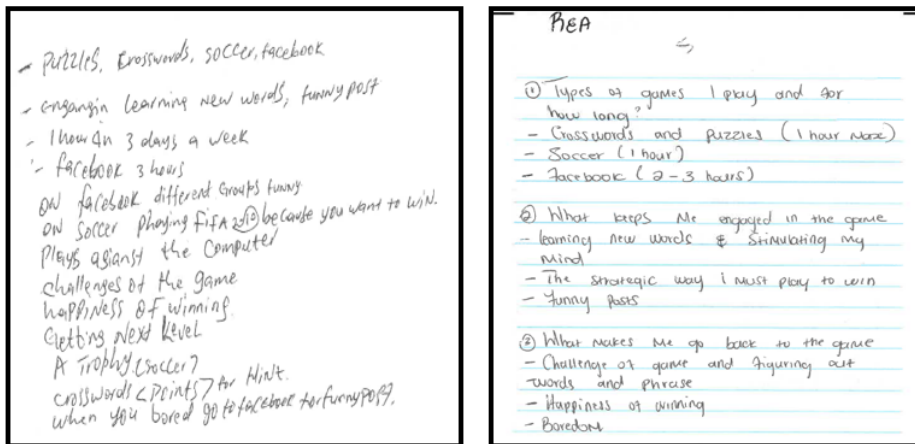 - Puzzles, Crosswords, soccer, facebook
- engangin learning new words, funny post
- 1 hour in 3 days a week
- facebook 3 hours
on facebook different Groups funny
on soccer phaying FifA because you want to win.
Plays agianst the computer
challenges of the game
happiness of winning.
Getting Next Level
A Trophy (soccer)
crosswords <Points> for Hint.
when you bored go to facebook for funny post.
REA
① Types of games I play and for
how long?
- Crosswords and puzzles (1 hour)
- Soccer (1 hour)
- Facebook (2-3 hours)
② What keeps Me engaged in the game
- learning new words & Stimulating My
Mind
- The strategic way i Must play to win
- Funny Posts
③ What Makes Me go back to the game
- Challenge of game and figuring out
words and phrase
- Happiness of winning
- Boredom